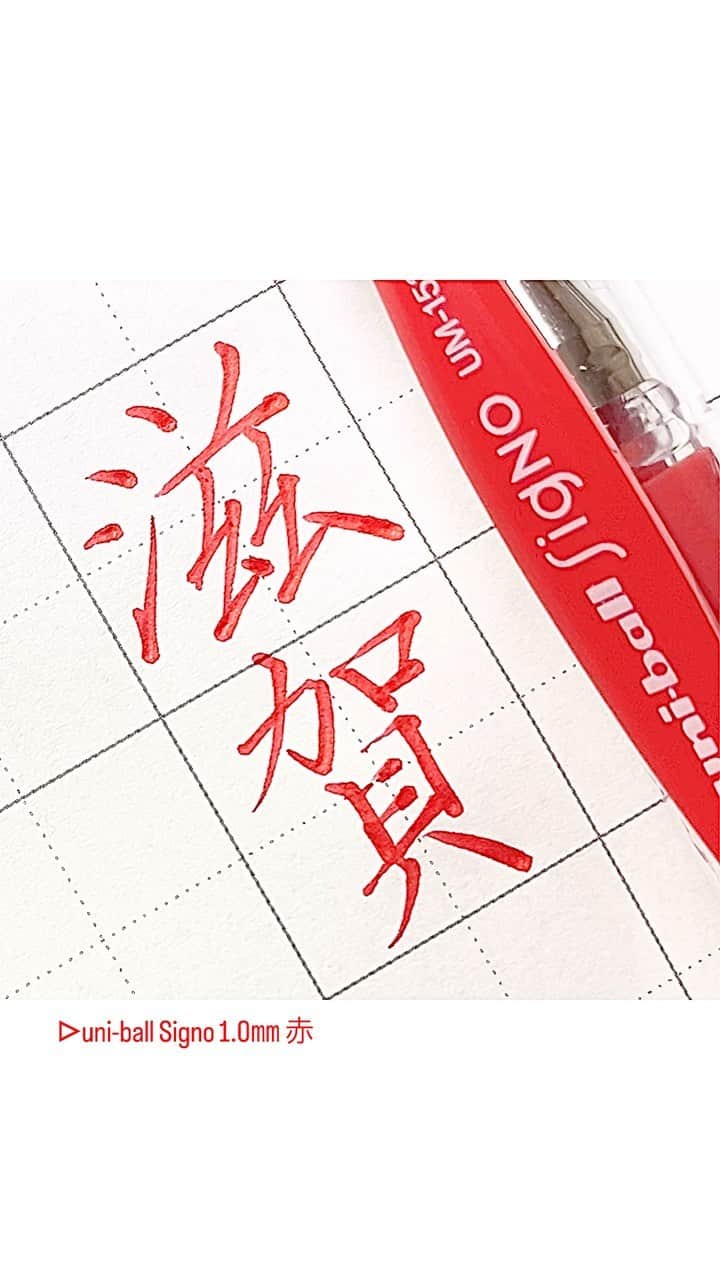 滋賀
uni-ball Signo UM-15
▷uni-ball Signo 1.0㎜ 赤